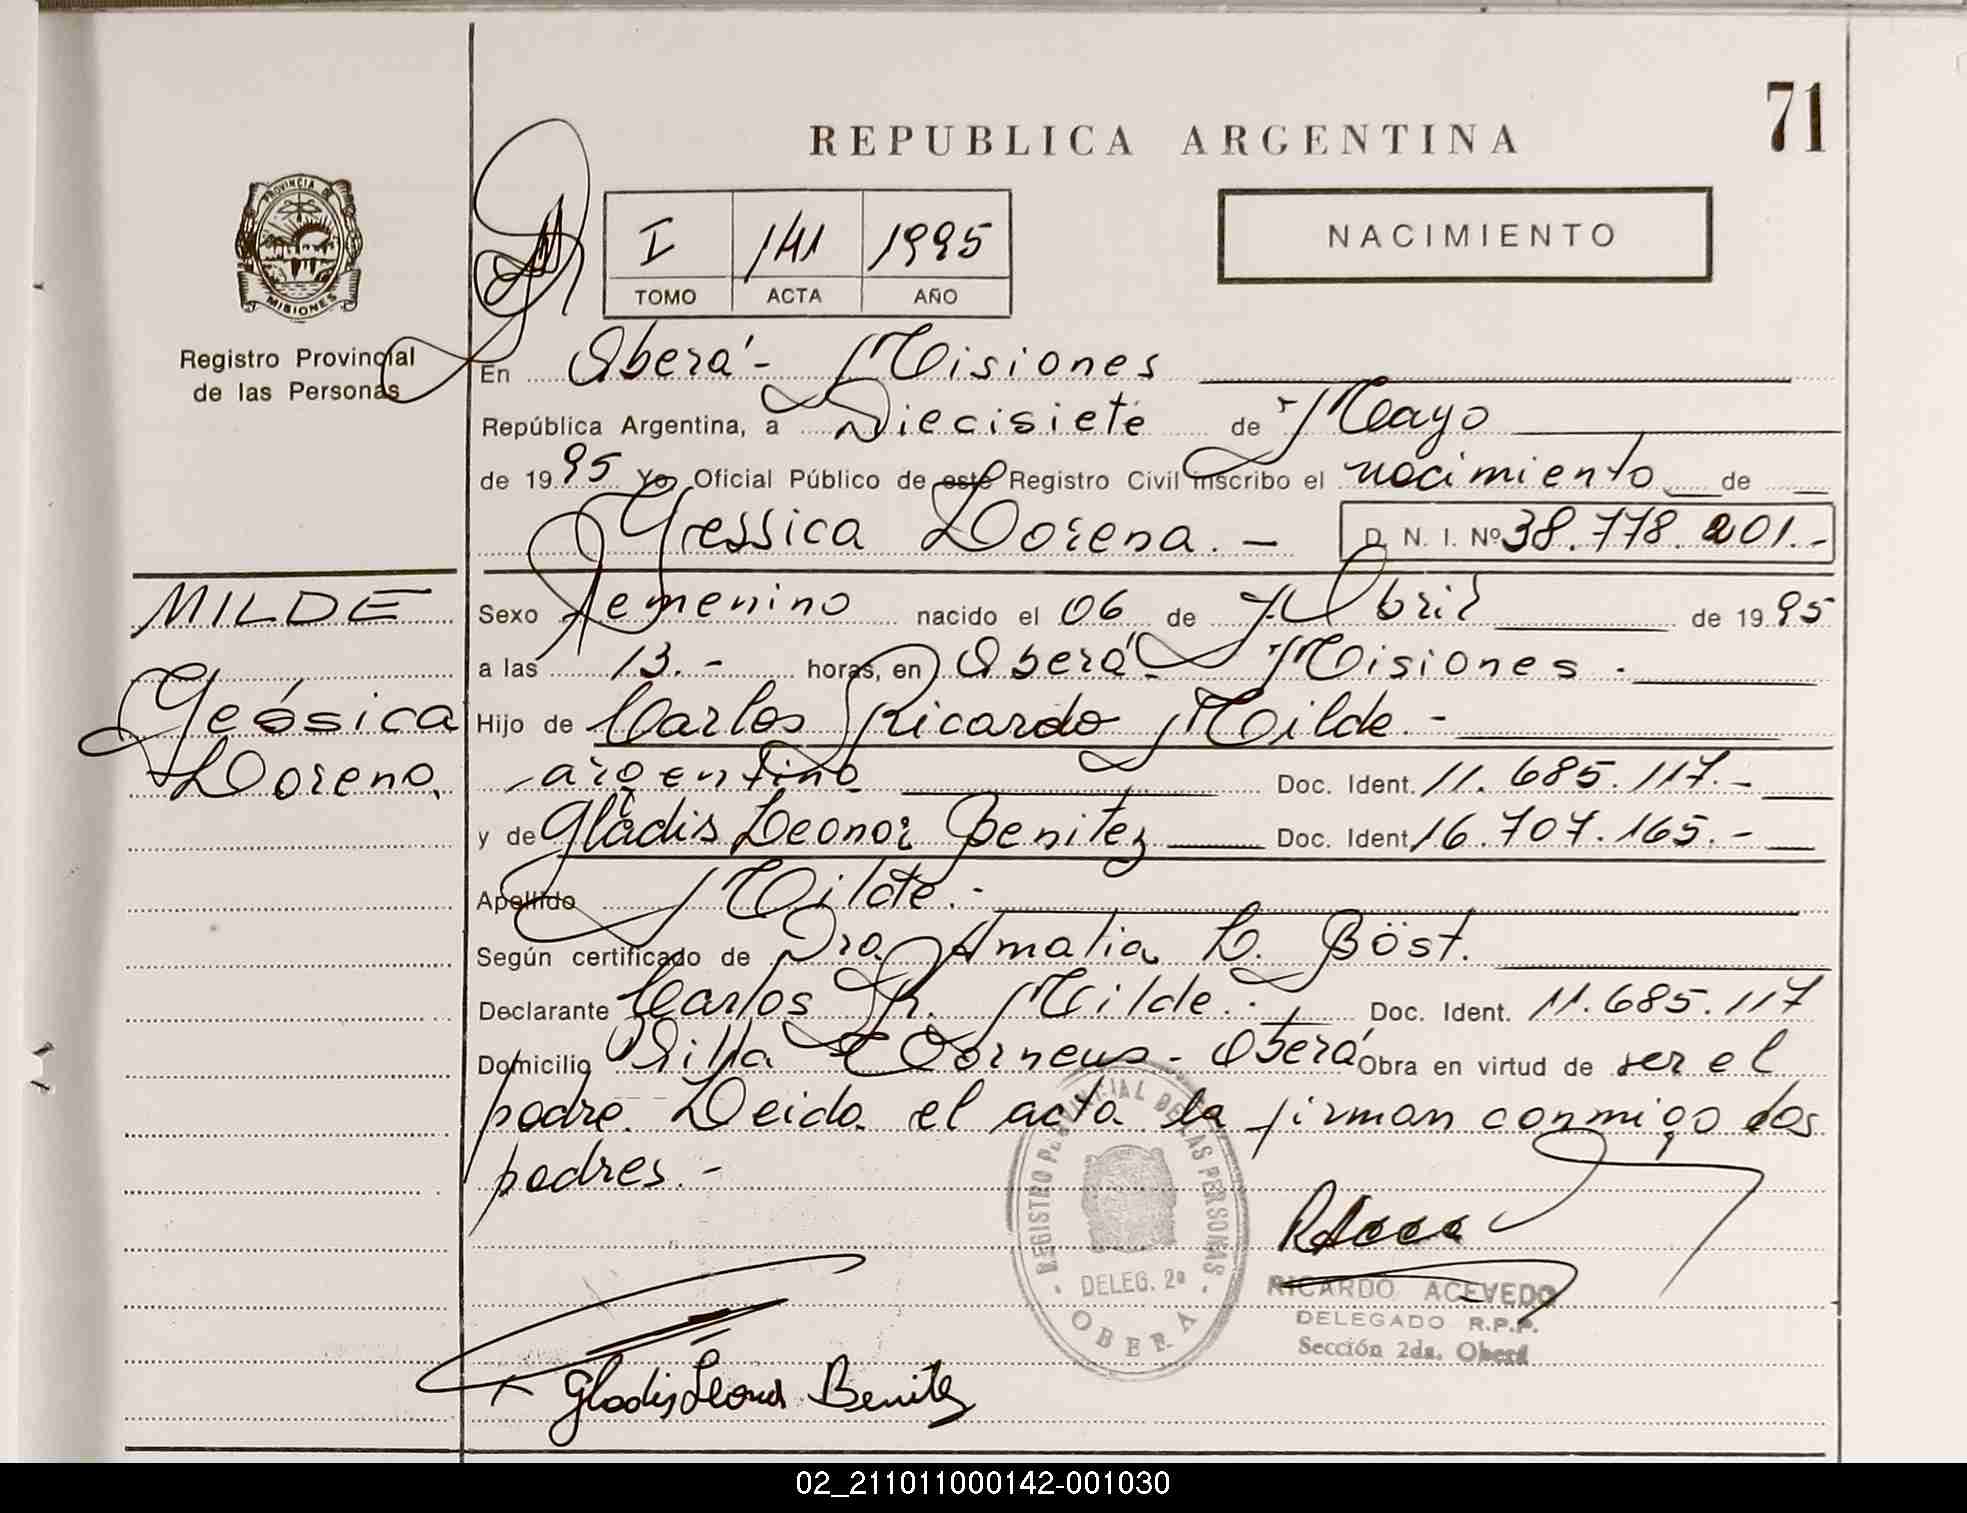 71
REPUBLICA ARGENTINA
NACIMIENTO
I 141 1995
TOMO ACTA AÑO
PROVINCIA DE
MISIONES
Registro Provincial
de las Personas
En Oberá - Misiones
República Argentina, a Diecisiete de Mayo
de 1995 Yo, Oficial Público de este Registro Civil inscribo el nacimiento de
Yessica Lorena. - D. N. I. Nº 38.778.201.-
MILDE
Yessica
Lorena.
Sexo Femenino nacido el 06 de Abril de 1995
a las 13.- horas, en Oberá - Misiones -
Hijo de Carlos Ricardo Milde. -
argentino Doc. Ident. 11.685.117.-
y de Gladis Leonor Benitez Doc. Ident. 16.707.165.-
Apellido Milde.-
Según certificado de Dra. Amalia L. Böst.
Declarante Carlos R. Milde.- Doc. Ident. 11.685.117
Domicilio Villa - Oberá Obra en virtud de ser el
padre. Leida el acta la firman conmigo los
padres.-
REGISTRO PROVINCIAL DE LAS PERSONAS
DELEG. 2ª
OBERA
RICARDO ACEVEDO
DELEGADO R.P.P.
Sección 2da. Oberá
Gladis Leonor Benitez
02_211011000142-001030